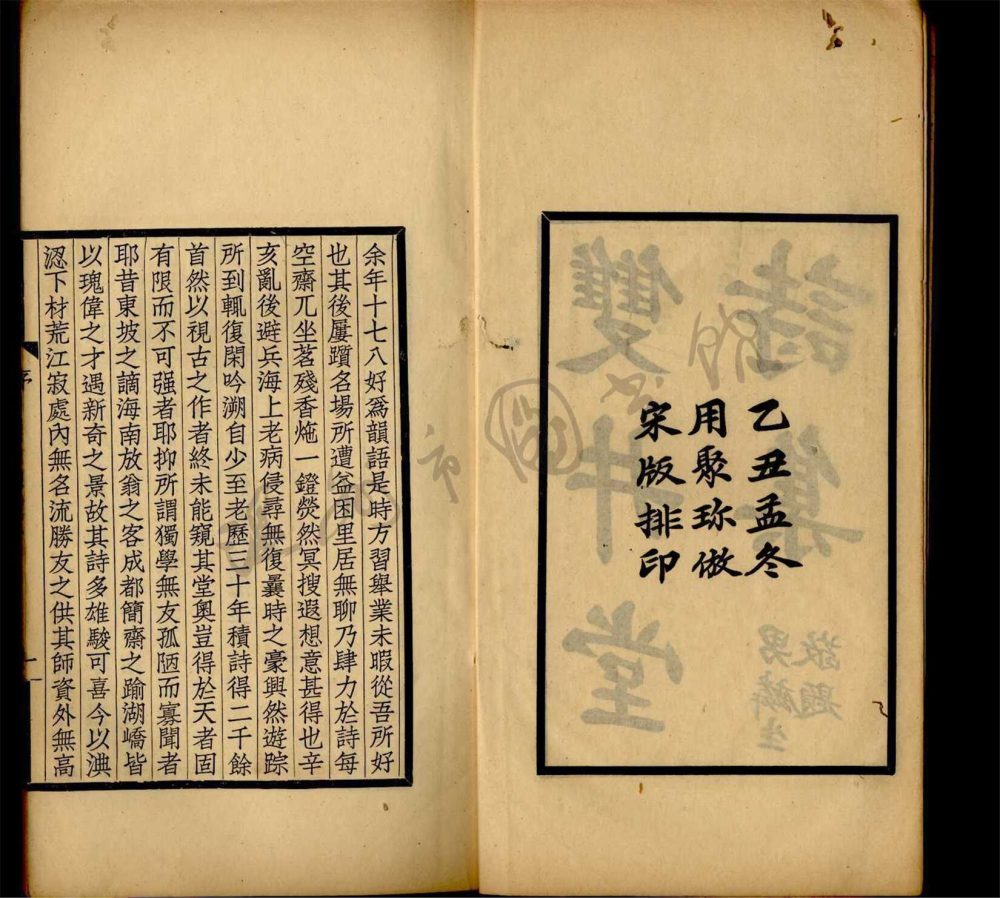 乙丑孟冬
用聚珍倣
宋版排印
余年十七八好爲韻語是時方習舉業未暇從吾所好
也其後屢躓名場所遭益困里居無聊乃肆力於詩每
空齋兀坐茗殘香灺一鐙熒然冥搜遐想意甚得也辛
亥亂後避兵海上老病侵尋無復曩時之豪興然遊踪
所到輒復閑吟溯自少至老歷三十年積詩得二千餘
首然以視古之作者終未能窺其堂奧豈得於天者固
有限而不可强者耶抑所謂獨學無友孤陋而寡聞者
耶昔東坡之謫海南放翁之客成都簡齋之踰湖嶠皆
以瑰偉之才遇新奇之景故其詩多雄駿可喜今以㳌
涊下材荒江寂處內無名流勝友之供其師資外無高